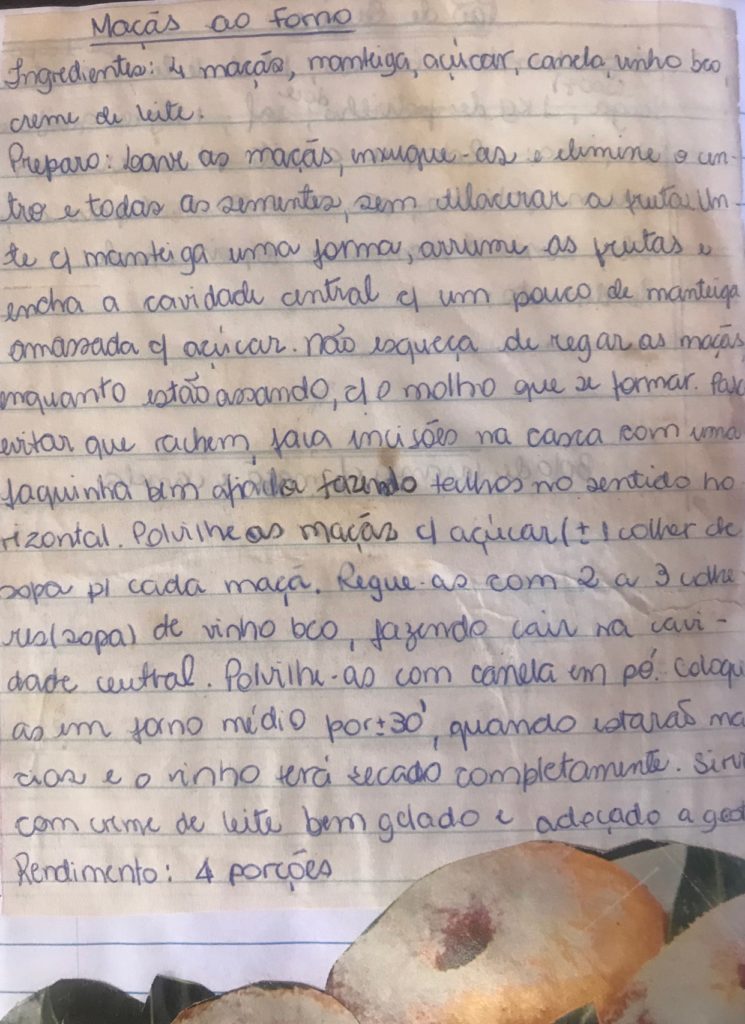 Maçãs ao forno
Ingredientes: 4 maçãs, manteiga, açúcar, canela, vinho bco,
creme de leite.
Preparo: Lave as maçãs, enxugue-as e elimine o cen-
tro e todas as sementes, sem dilacerar a fruta. Un-
te c/ manteiga uma forma, arrume as frutas e
encha a cavidade central c/ um pouco de manteiga
amassada c/ açúcar. Não esqueça de regar as maçãs,
enquanto estão assando, c/ o molho que se formar. Para
evitar que rachem, faça incisões na casca com uma
faquinha bem afiada fazendo talhos no sentido ho
rizontal. Polvilhe as maçãs c/ açúcar (± 1 colher de
sopa p/ cada maçã. Regue-as com 2 a 3 colhe
res (sopa) de vinho bco, fazendo cair na cavi-
dade central. Polvilhe-as com canela em pó. Coloqu
as em forno médio por ± 30', quando estarão ma
cias e o vinho terá secado completamente. Sirv
com creme de leite bem gelado e adoçado a gost
Rendimento: 4 porções